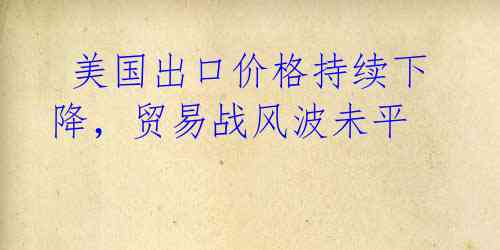 美国出口价格持续下
降，贸易战风波未平